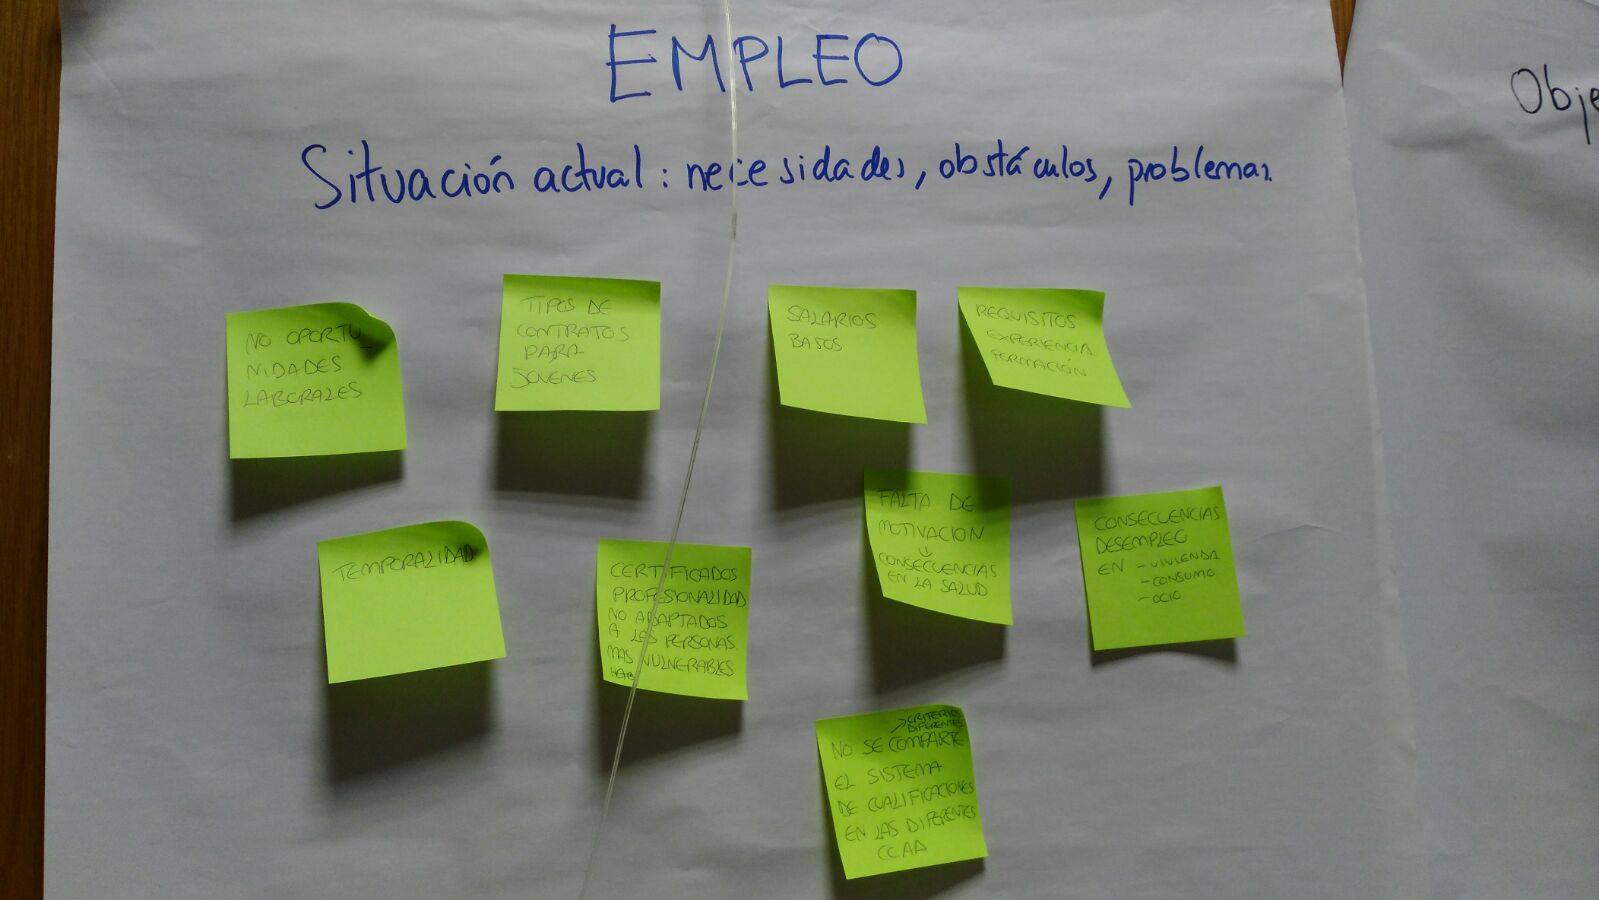 EMPLEO
Situación actual: necesidades, obstáculos, problemas.
Obje
NO OPORTU_
NIDADES
LABORALES
TIPOS DE
CONTRATOS
PARA
JOVENES
SALARIOS
BAJOS
REQUISITOS
EXPERIENCIA
FORMACIÓN
TEMPORALIDAD
CERTIFICADOS
PROFESIONALIDAD
NO ADAPTADOS
A LAS PERSONAS
MAS VULNERABLES
FALTA DE
MOTIVACION
↓
CONSECUENCIAS
EN LA SALUD
CONSECUENCIAS
DESEMPLEO
EN - VIVIENDA
- CONSUMO
- OCIO
> CRITERIOS
DIFERENTES
NO SE COMPARTE
EL SISTEMA
DE CUALIFICACIONES
EN LAS DIFERENTES
CCAA